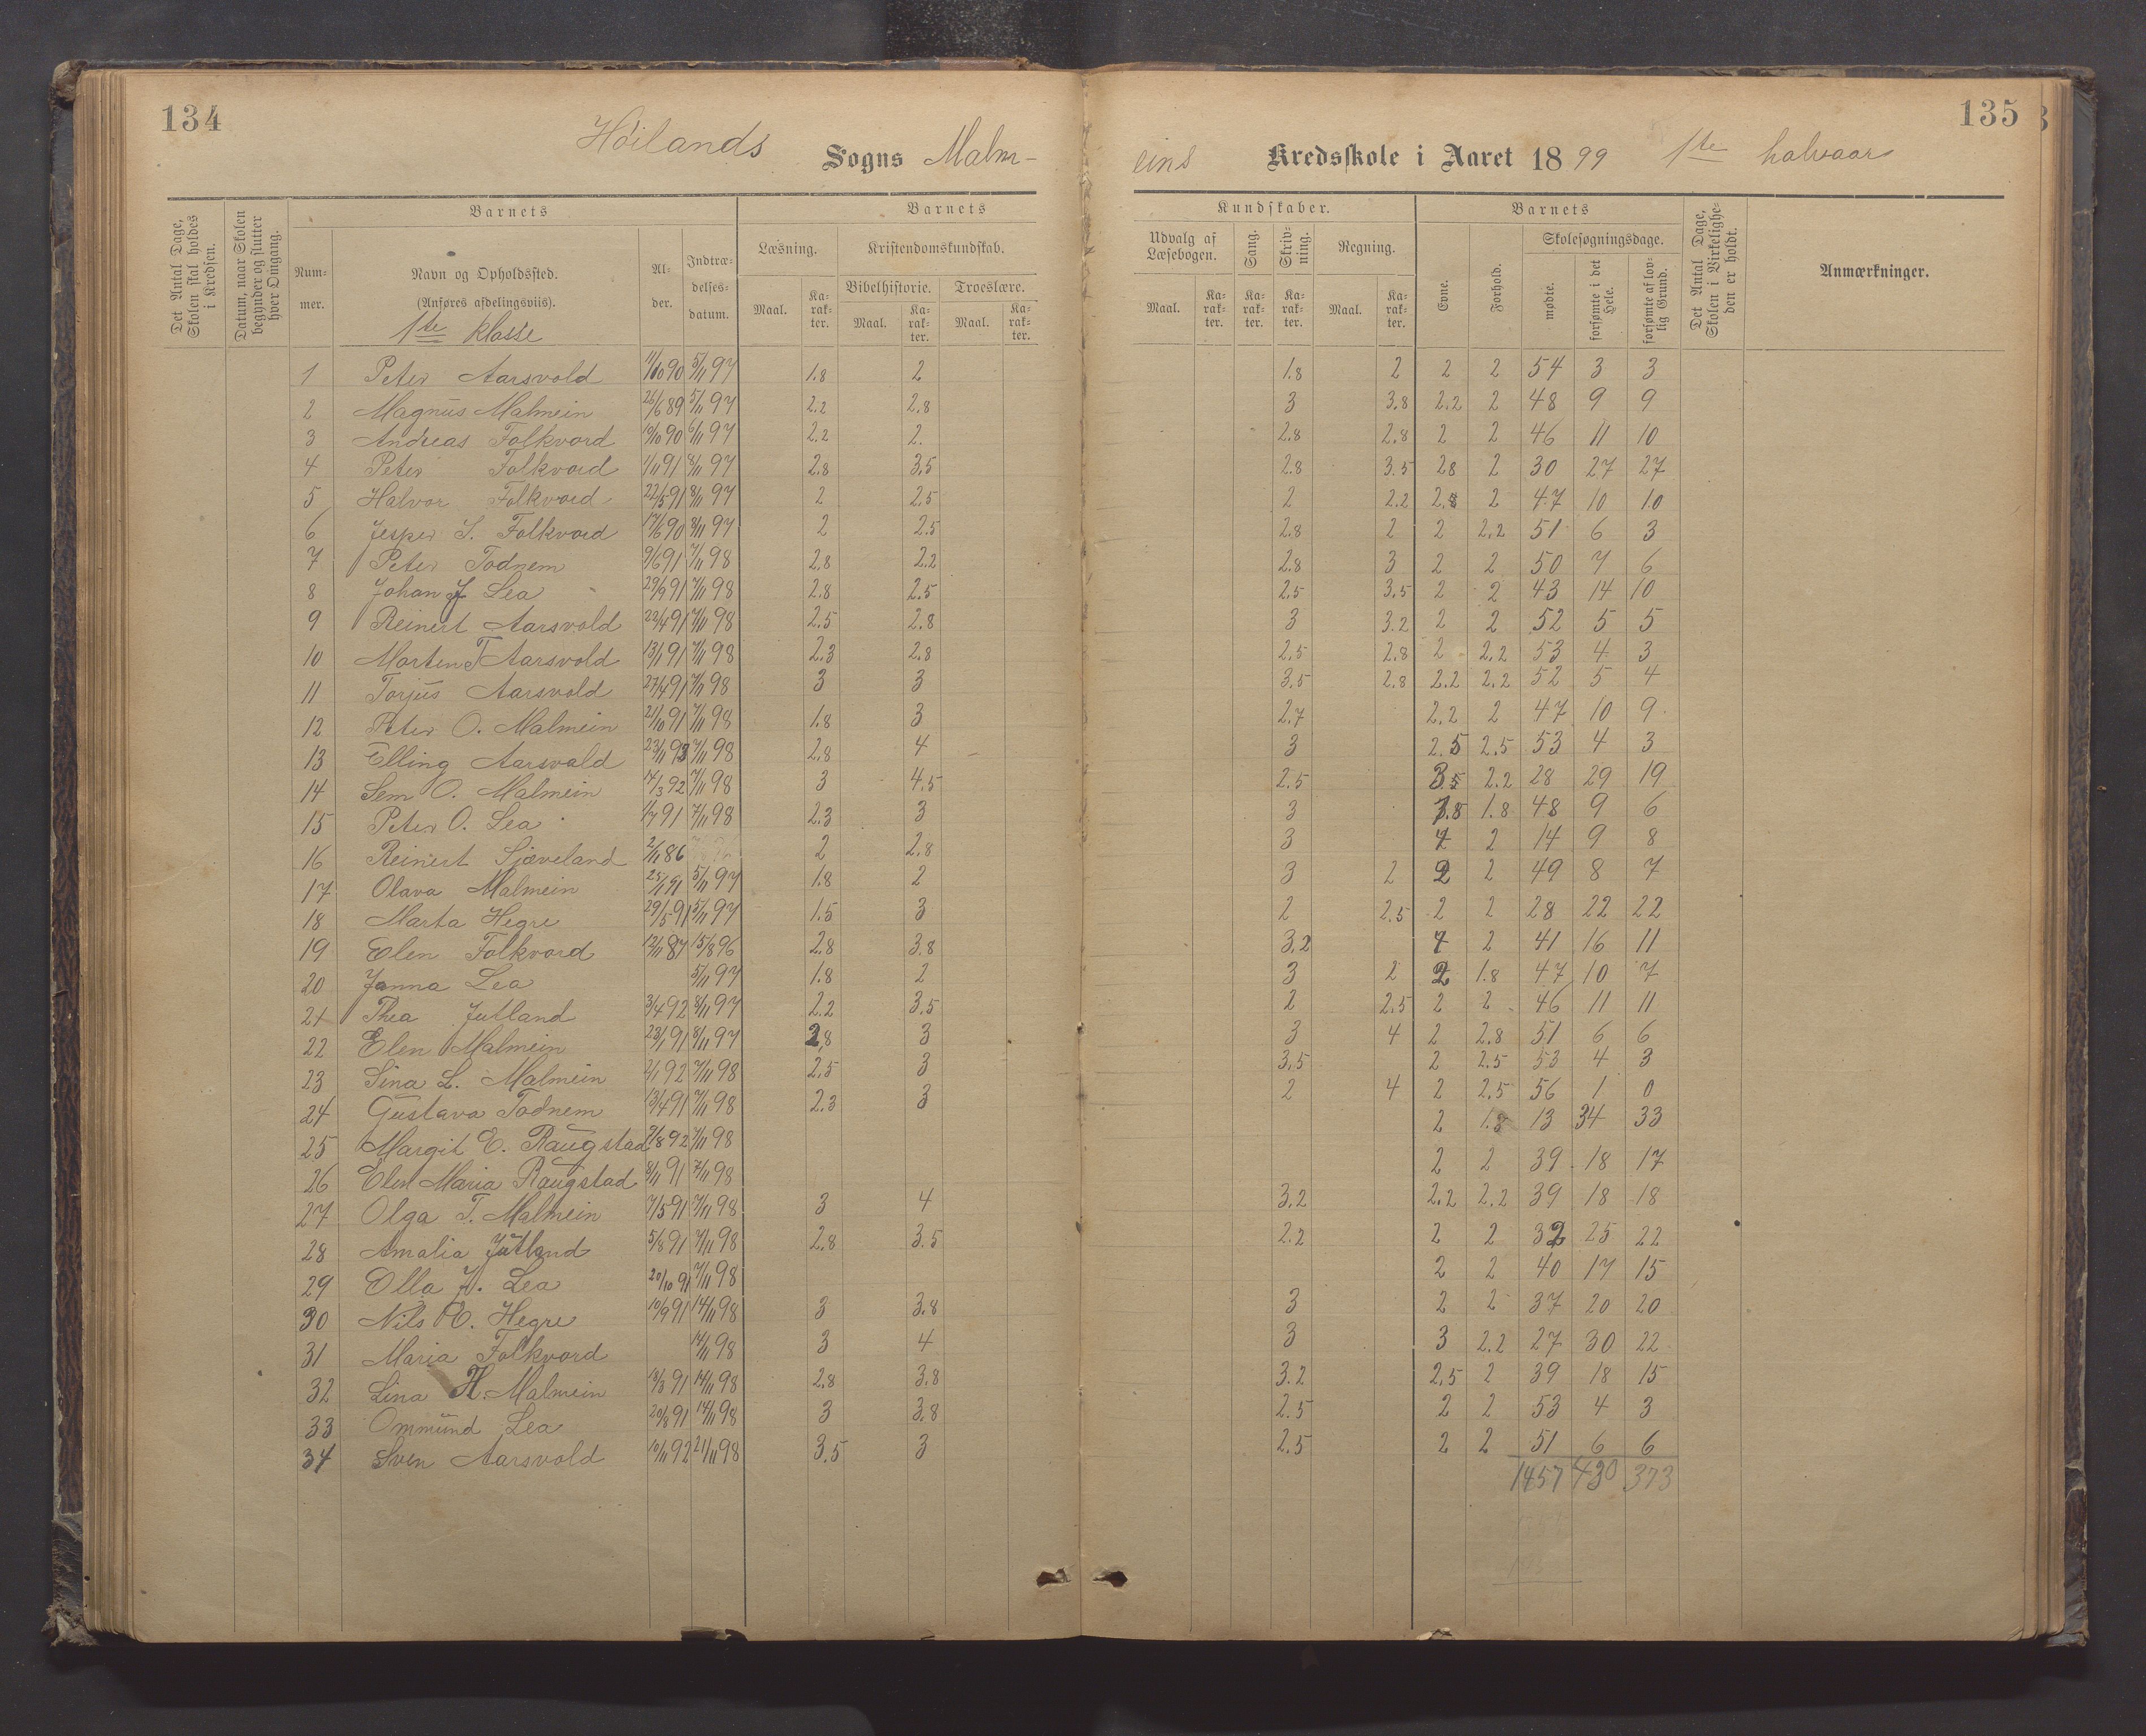 134
135
Höilands Sogns Malm-
eins Kredsskole i Aaret 1899 1ste halvaar
Det Antal Dage, Skolen skal holdes i Kredsen.
Datum, naar Skolen begynder og slutter hver Omgang.
Barnets
Num-mer.
Navn og Opholdssted.
(Anføres afdelingsviis).
1ste klasse
Al-der.
Indtræ-delses-datum.
Barnets
Læsning.
Maal.
Ka-rak-ter.
Kristendomskundskab.
Bibelhistorie.
Maal.
Ka-rak-ter.
Troeslære.
Maal.
Ka-rak-ter.
Kundskaber.
Udvalg af Læsebogen.
Maal.
Ka-rak-ter.
Sang.
Ka-rak-ter.
Skriv-ning.
Ka-rak-ter.
Regning.
Maal.
Ka-rak-ter.
Barnets
Evne.
Forhold.
Skolesøgningsdage.
mødte.
forsømte i det Hele.
forsømte af lov-lig Grund.
Det Antal Dage, Skolen i Virkelighe-den er holdt.
Anmærkninger.
1 Peter Aarsvold 11/10 90 5/11 97 1.8 2 1.8 2 2 2 54 3 3
2 Magnus Malmein 26/6 89 5/11 97 2.2 2.8 3 3.8 2.2 2 48 9 9
3 Andreas Folkvord 10/10 90 6/11 97 2.2 2. 2.8 2.8 2 2 46 11 10
4 Peter Folkvord 1/11 91 8/11 97 2.8 3.5 2.8 3.5 2.8 2 30 27 27
5 Halvor Folkvord 22/5 91 8/11 97 2 2.5 2 2.2 2.8 2 47 10 10
6 Jesper S. Folkvord 17/6 90 8/11 97 2 2.5 2.8 2 2 2.2 51 6 3
7 Peter Todnem 9/6 91 7/11 98 2.8 2.2 2.8 3 2 2 50 7 6
8 Johan J Lea 29/9 91 7/11 98 2.8 2.5 2.5 3.5 2 2 43 14 10
9 Reinert Aarsvold 22/4 91 7/11 98 2.5 2.8 3 3.2 2 2 52 5 5
10 Morten T Aarsvold 13/1 91 7/11 98 2.3 2.8 2.5 2.8 2 2.2 53 4 3
11 Torjus Aarsvold 27/4 91 7/11 98 3 3 3.5 2.8 2.2 2.2 52 5 4
12 Peter O. Malmein 21/10 91 7/11 98 1.8 3 2.7 2.2 2 47 10 9
13 Elling Aarsvold 23/11 93 7/11 98 2.8 4 3 2.5 2.5 53 4 3
14 Sem O. Malmein 14/3 92 7/11 98 3 4.5 2.5 3.5 2.2 28 29 19
15 Peter O. Lea 1/7 91 7/11 98 2.3 3 3 1.8 1.8 48 9 6
16 Reinert Sjæveland 2/11 86 2 2.8 3 4 2 14 9 8
17 Olava Malmein 25/1 91 5/11 97 1.8 2 3 2 2 2 49 8 7
18 Marta Hegre 29/5 91 5/11 97 1.5 3 2 2.5 2 2 28 22 22
19 Elen Folkvord 12/11 87 15/8 96 2.8 3.8 3.2 4 2 41 16 11
20 Janna Lea 5/11 97 1.8 2 3 2 2 1.8 47 10 7
21 Thea Jutland 3/4 92 8/11 97 2.2 3.5 2 2.5 2 2 46 11 11
22 Elen Malmein 23/1 91 8/11 97 2.8 3 3 4 2 2.8 51 6 6
23 Sina L. Malmein 2/1 92 7/11 98 2.5 3 3.5 2 2.5 53 4 3
24 Gustava Todnem 13/4 91 7/11 98 2.3 3 2 4 2 2.5 56 1 0
25 Margit E. Raugstad 9/8 92 7/11 98 2 1.8 13 34 33
26 Elen Maria Raugstad 8/11 91 7/11 98 2 2 39 18 17
27 Olga T. Malmein 7/5 91 7/11 98 3 4 3.2 2.2 2.2 39 18 18
28 Amalia Jutland 5/8 91 7/11 98 2.8 3.5 2.2 2 2 32 25 22
29 Olla J. Lea 20/10 91 7/11 98 2 2 40 17 15
30 Nils E. Hegre 10/9 91 14/11 98 3 3.8 3 2 2 37 20 20
31 Maria Folkvord 14/11 98 3 4 3 3 2.2 27 30 22
32 Lina H. Malmein 18/3 91 14/11 98 2.8 3.8 3.2 2.5 2 39 18 15
33 Ommund Lea 20/8 91 14/11 98 3 3.8 2.5 2 2 53 4 3
34 Sven Aarsvold 10/11 92 21/11 98 3.5 3 2.5 2 2 51 6 6
1457 430 373